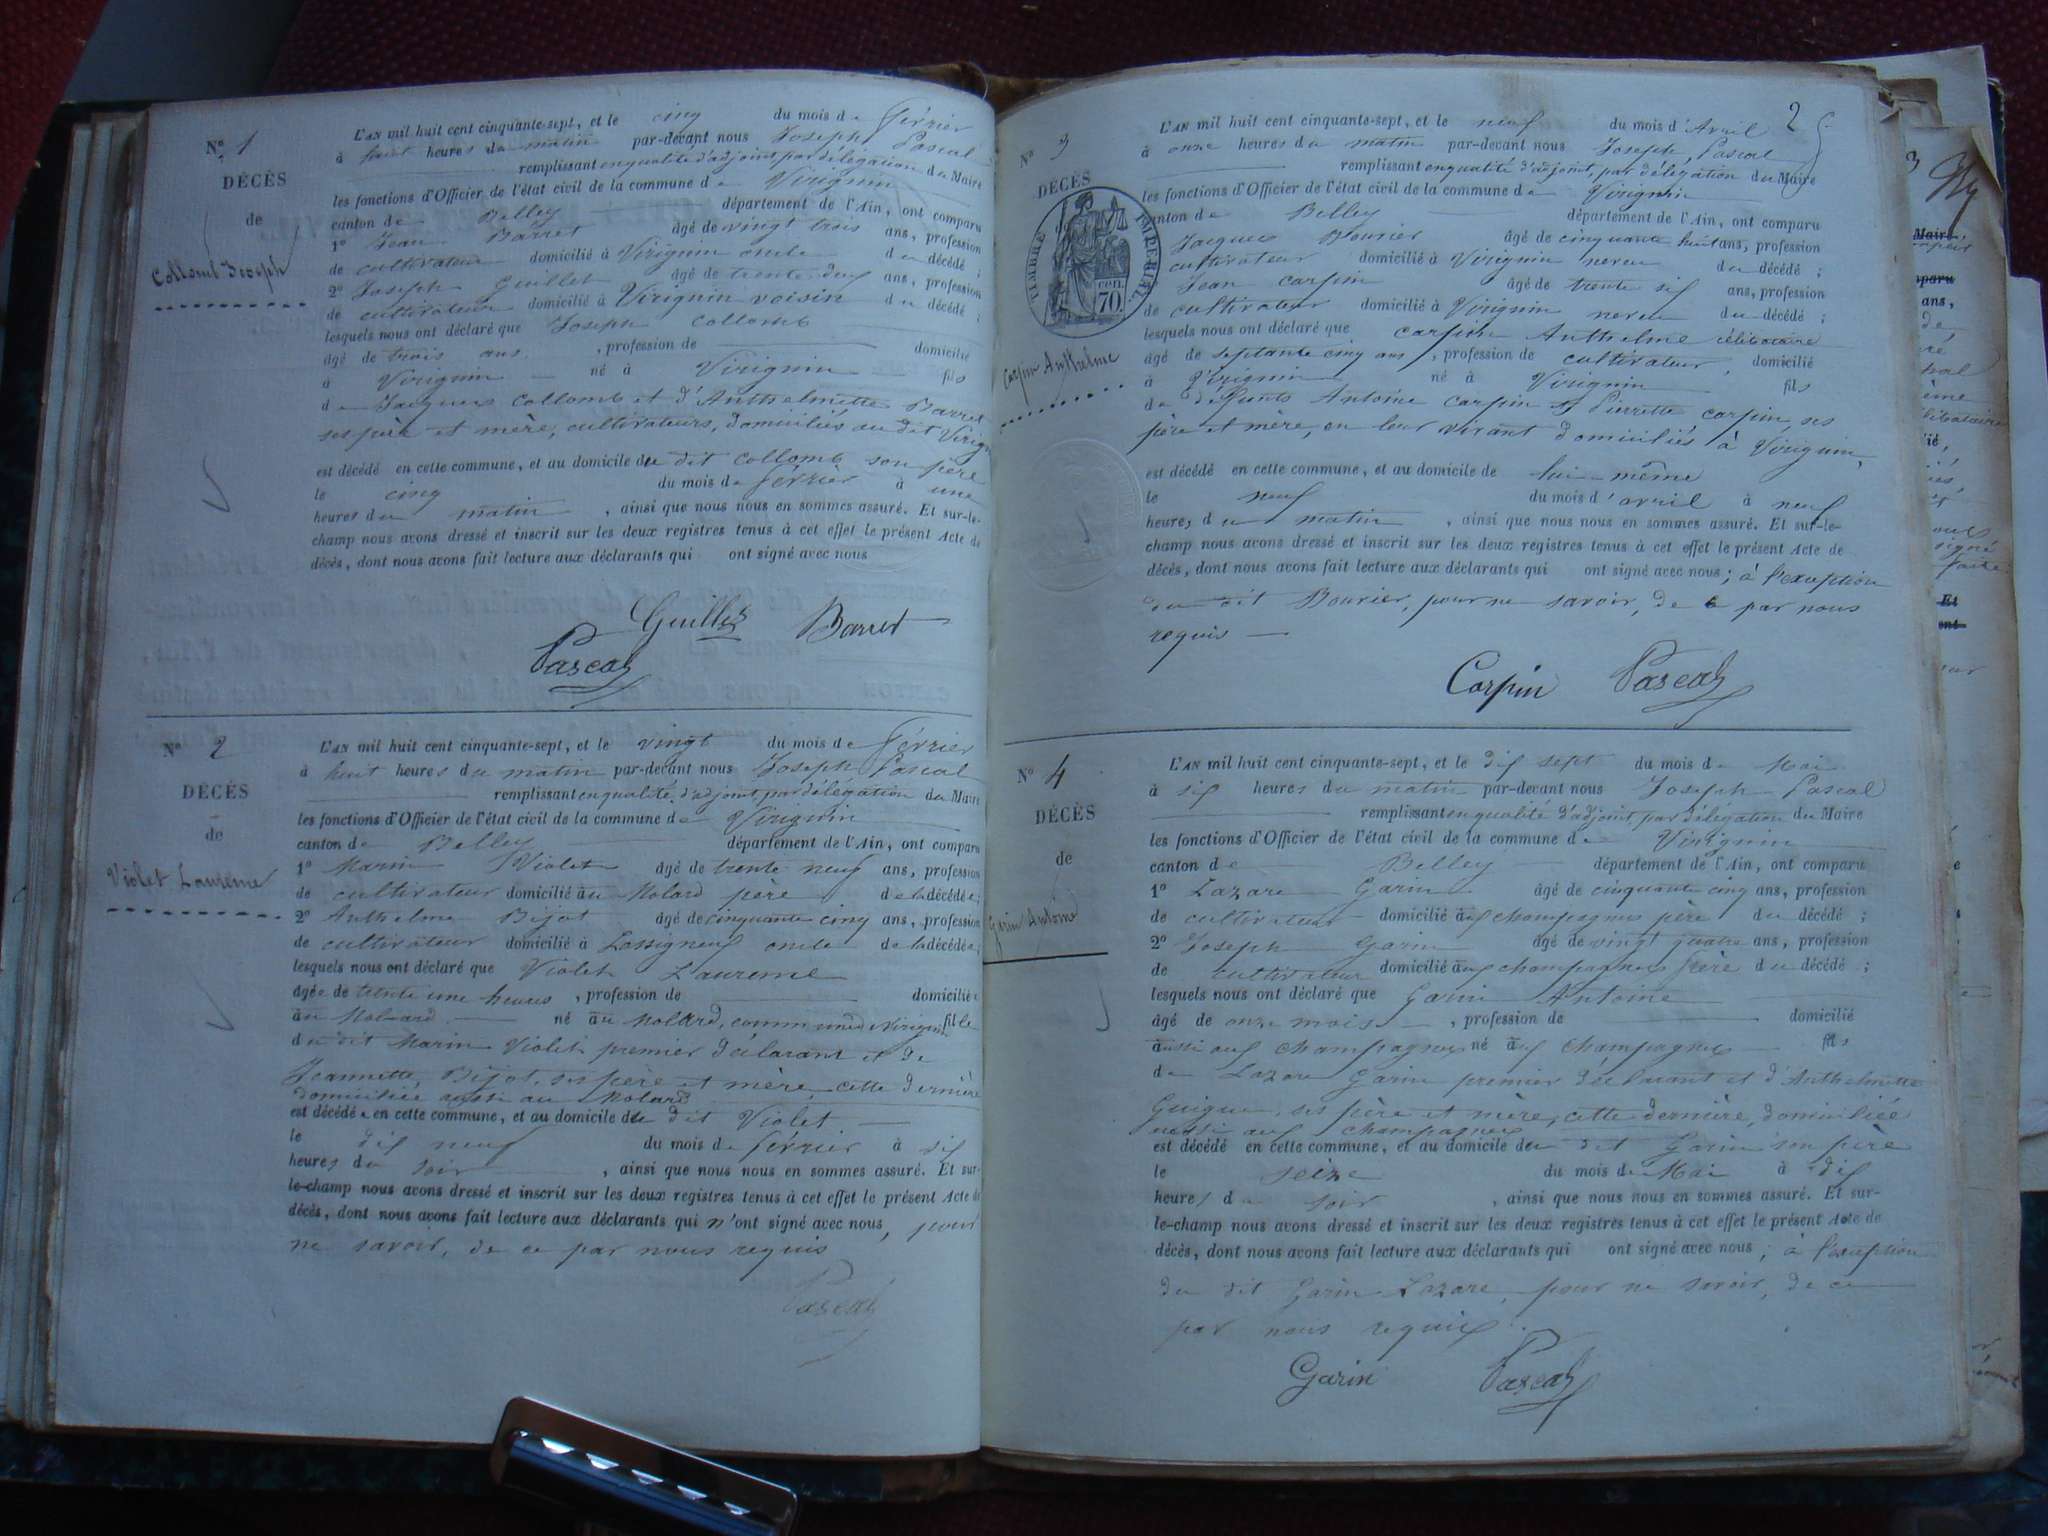 N° 1
DÉCÈS
de
Collomb Joseph
L'AN mil huit cent cinquante-sept, et le cinq du mois de Février
à huit heures du matin par-devant nous Joseph Pascal
remplissant en qualité d'adjoint par délégation du Maire
les fonctions d'Officier de l'état civil de la commune de Virignin
canton de Belley département de l'Ain, ont comparu
1° Jean Barret âgé de vingt trois ans, profession
de cultivateur domicilié à Virignin oncle du décédé ;
2° Joseph Guillet âgé de trente-deux ans, profession
de cultivateur domicilié à Virignin voisin du décédé ;
lesquels nous ont déclaré que Joseph Collomb
âgé de trois ans , profession de domicilié
à Virignin né à Virignin fils
de Jacques Collomb et d'Anthelmette Barret
ses père et mère, cultivateurs, domiciliés au dit Virign
est décédé en cette commune, et au domicile du dit Collomb son père
le cinq du mois de Février à une
heures du matin , ainsi que nous nous en sommes assuré. Et sur-le-
champ nous avons dressé et inscrit sur les deux registres tenus à cet effet le présent Acte de
décès, dont nous avons fait lecture aux déclarants qui ont signé avec nous
Guillet Barret
Pascal
N° 2
DÉCÈS
de
Violet Laurence
L'AN mil huit cent cinquante-sept, et le vingt du mois de Février
à huit heures du matin par-devant nous Joseph Pascal
remplissant en qualité d'adjoint, par délégation du Maire
les fonctions d'Officier de l'état civil de la commune de Virignin
canton de Belley département de l'Ain, ont comparu
1° Marin Violet âgé de trente neuf ans, profession
de cultivateur domicilié au Molard père de la décédée ;
2° Anthelme Bijot âgé de cinquante cinq ans, profession
de cultivateur domicilié à Lassigneux oncle de la décédée ;
lesquels nous ont déclaré que Violet Laurence
âgée de trente une heures , profession de domiciliée
au Molard né au Molard, commune de Virignin fille
du dit Marin Violet premier déclarant et de
Jeannette Bijot, ses père et mère, cette dernière
domiciliée aussi au Molard
est décédée en cette commune, et au domicile du dit Violet
le dix neuf du mois de Février à six
heures du soir , ainsi que nous nous en sommes assuré. Et sur-
le-champ nous avons dressé et inscrit sur les deux registres tenus à cet effet le présent Acte de
décès, dont nous avons fait lecture aux déclarants qui n'ont signé avec nous, pour
ne savoir, de ce par nous requis
Pascal
2
N° 3
DÉCÈS
TIMBRE IMPÉRIAL
CEN. 70.
Carpin Anthelme
L'AN mil huit cent cinquante-sept, et le neuf du mois d'Avril
à onze heures du matin par-devant nous Joseph Pascal
remplissant en qualité d'adjoint, par délégation du Maire
les fonctions d'Officier de l'état civil de la commune de Virignin
canton de Belley département de l'Ain, ont comparu
Jacques Bourier âgé de cinquante huit ans, profession
cultivateur domicilié à Virignin neveu du décédé ;
Jean Carpin âgé de trente six ans, profession
de cultivateur domicilié à Virignin neveu du décédé ;
lesquels nous ont déclaré que Carpin Anthelme célibataire
âgé de septante cinq ans , profession de cultivateur, domicilié
à Virignin né à Virignin fils
de défunts Antoine Carpin et Pierrette Carpin, ses
père et mère, en leur vivant domiciliés à Virignin,
est décédé en cette commune, et au domicile de lui-même
le neuf du mois d'avril à neuf
heures du matin , ainsi que nous nous en sommes assuré. Et sur-le-
champ nous avons dressé et inscrit sur les deux registres tenus à cet effet le présent Acte de
décès, dont nous avons fait lecture aux déclarants qui ont signé avec nous ; à l'exception
du dit Bourier, pour ne savoir, de ce par nous
requis
Carpin Pascal
N° 4
DÉCÈS
de
Garin Antoine
L'AN mil huit cent cinquante-sept, et le dix sept du mois de Mai
à six heures du matin par-devant nous Joseph Pascal
remplissant en qualité d'adjoint par délégation du Maire
les fonctions d'Officier de l'état civil de la commune de Virignin
canton de Belley département de l'Ain, ont comparu
1° Lazare Garin âgé de cinquante cinq ans, profession
de cultivateur domicilié aux champagnes père du décédé ;
2° Joseph Garin âgé de vingt quatre ans, profession
de cultivateur domicilié aux champagnes frère du décédé ;
lesquels nous ont déclaré que Garin Antoine
âgé de onze mois , profession de domicilié
aussi aux champagnes né aux champagnes fils
de Lazare Garin premier déclarant et d'Anthelmette
Guigue, ses père et mère, cette dernière, domiciliée
aussi aux champagnes
est décédé en cette commune, et au domicile du dit Garin son père
le seize du mois de Mai à dix
heures du soir , ainsi que nous nous en sommes assuré. Et sur-
le-champ nous avons dressé et inscrit sur les deux registres tenus à cet effet le présent Acte de
décès, dont nous avons fait lecture aux déclarants qui ont signé avec nous ; à l'exception
du dit Garin Lazare, pour ne savoir, de ce
par nous requis.
Garin Pascal